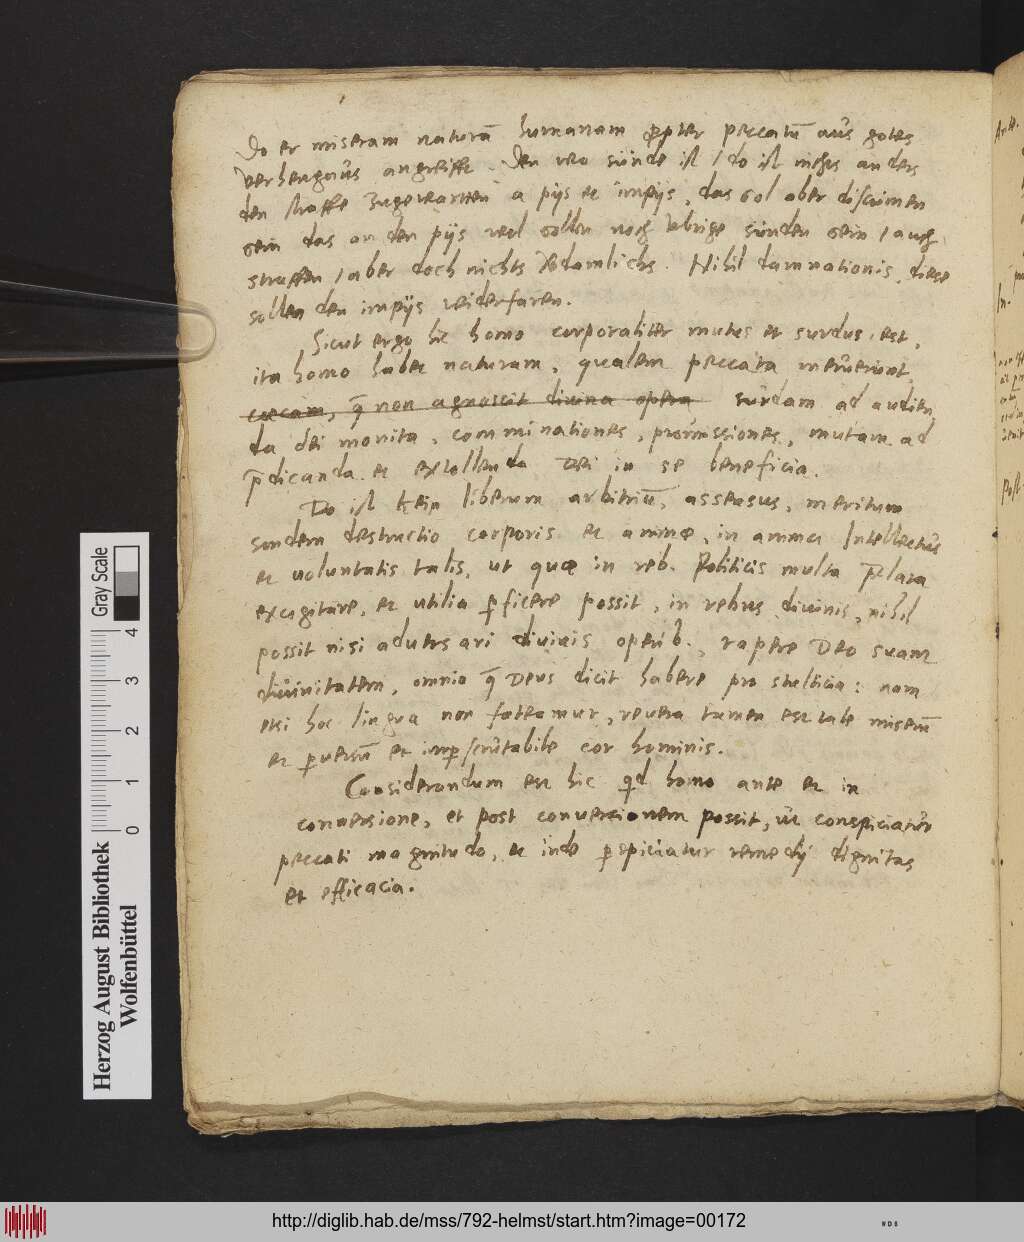 Do er miseram naturā humanam propter peccatū aus gotes
verhengnus angreiffe. Den wo sünde ist / do ist nichts anders
den straffe zugewarten a pijs et impijs, das sol aber discrimen
sein das an den pijs wol sollen noch ubrige sünden sein / auch
straffen / aber doch nichts vordamlichs. Nihil damnationis, diese
sollen den impijs widerfaren.
Sicut ergo hic homo corporaliter mutus et surdus est,
ita homo habet naturam, qualem peccata meruerunt,
cæcam, quae non agnoscit divina opera surdam ad audien
da dei monita, comminationes, promissiones, mutam ad
p̄dicanda et extollenda Dei in se beneficia.
Do ist kein liberum arbitriū, assensus, meritum
sondern destructio corporis et animæ, in anima Intellectus
et voluntatis talis, ut quæ in reb. Politicis multa
excogitare, et utilia pficere possit, in rebus divinis, nihil
possit nisi adversari divinis operib., rapere Deo suam
divinitatem, omnia q̄ Deus dicit habere pro stultitia: nam
etsi hoc lingua non fateamur, revera tamen est tale miserū
et pversū et imp̱scrutabile cor hominis.
Considerandum est hic qd homo ante et in
conversione, et post conversionem possit, ut conspiciatur
peccati magnitudo, et inde pspiciatur remedij dignitas
et efficacia.
Herzog August Bibliothek
Wolfenbüttel
Gray Scale
0 1 2 3 4
http://diglib.hab.de/mss/792-helmst/start.htm?image=00172